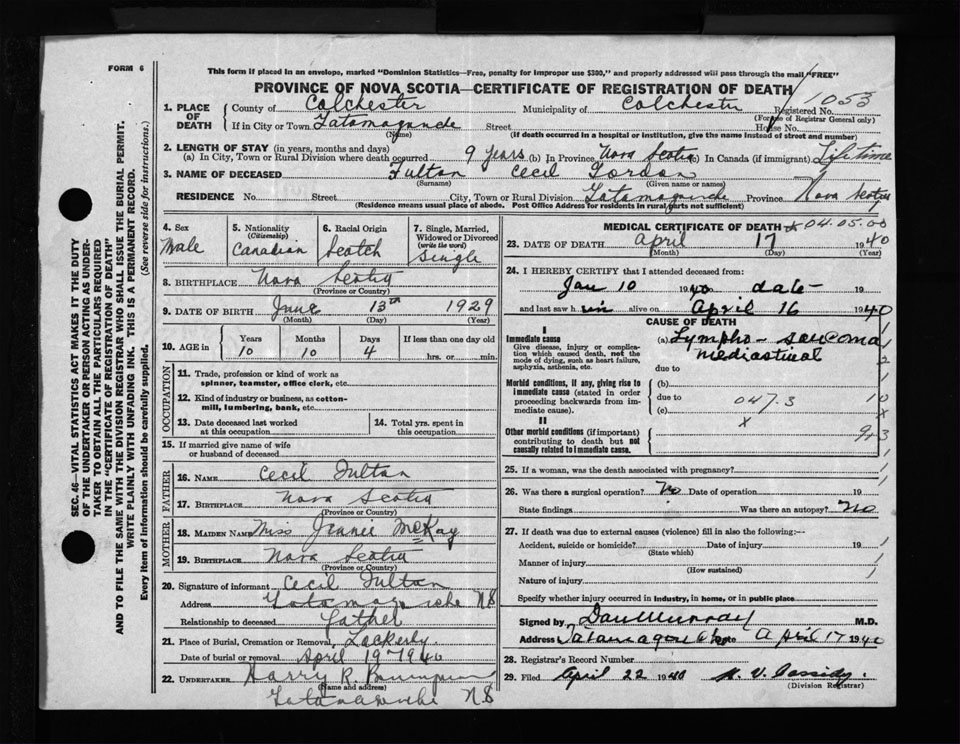 FORM 6
This form if placed in an envelope, marked "Dominion Statistics—Free, penalty for improper use $300," and properly addressed will pass through the mail "FREE"
PROVINCE OF NOVA SCOTIA—CERTIFICATE OF REGISTRATION OF DEATH
1. PLACE OF DEATH County of Colchester Municipality of Colchester Registered No. 1053
(For use of Registrar General only)
If in City or Town Tatamagouche Street House No.
(Name) (If death occurred in a hospital or institution, give the name instead of street and number)
2. LENGTH OF STAY (in years, months and days)
(a) In City, Town or Rural Division where death occurred 9 years (b) In Province Nova Scotia (c) In Canada (if immigrant) Lifetime
3. NAME OF DECEASED Fulton Cecil Gordon
(Surname) (Given name or names)
RESIDENCE No. Street City, Town or Rural Division Tatamagouche Province Nova Scotia
(Residence means usual place of abode. Post Office Address for residents in rural parts not sufficient)
4. Sex Male
5. Nationality (Citizenship) Canadian
6. Racial Origin Scotch
7. Single, Married, Widowed or Divorced (write the word) Single
8. BIRTHPLACE Nova Scotia
(Province or Country)
9. DATE OF BIRTH June 13th 1929
(Month) (Day) (Year)
10. AGE in Years Months Days If less than one day old
10 10 4 hrs. or min.
OCCUPATION
11. Trade, profession or kind of work as spinner, teamster, office clerk, etc.
12. Kind of industry or business, as cotton-mill, lumbering, bank, etc.
13. Date deceased last worked at this occupation
14. Total yrs. spent in this occupation
15. If married give name of wife or husband of deceased
FATHER
16. NAME Cecil Fulton
17. BIRTHPLACE Nova Scotia
(Province or Country)
MOTHER
18. MAIDEN NAME Miss Jeanie McKay
19. BIRTHPLACE Nova Scotia
(Province or Country)
20. Signature of informant Cecil Fulton
Address Tatamagouche NS
Relationship to deceased father
21. Place of Burial, Cremation or Removal Lockerby
Date of burial or removal April 19 1940
22. UNDERTAKER Harry R.
(Name and address)
Tatamagouche NS
MEDICAL CERTIFICATE OF DEATH *04.05.00
23. DATE OF DEATH April 17 1940
(Month) (Day) (Year)
24. I HEREBY CERTIFY that I attended deceased from:
Jan 10 1940 to date 19
and last saw him alive on April 16 1940
CAUSE OF DEATH
I
Immediate cause
Give disease, injury or complication which caused death, not the mode of dying, such as heart failure, asphyxia, asthenia, etc.
(a) Lympho-sarcoma
mediastinal
due to
Morbid conditions, if any, giving rise to immediate cause (stated in order proceeding backwards from immediate cause).
(b)
due to 047.3 10
(c) x
II
Other morbid conditions (if important) contributing to death but not causally related to immediate cause.
x
943
25. If a woman, was the death associated with pregnancy?
26. Was there a surgical operation? No Date of operation 19
State findings Was there an autopsy? No
27. If death was due to external causes (violence) fill in also the following:—
Accident, suicide or homicide? Date of injury 19
(State which)
Manner of injury
(How sustained)
Nature of injury
Specify whether injury occurred in industry, in home, or in public place
Signed by Dan Murray M.D.
Address Tatamagouche Date April 17 1940
28. Registrar's Record Number
29. Filed April 22 1940 H. V. Cassidy
(Division Registrar)
SEC. 46—VITAL STATISTICS ACT MAKES IT THE DUTY
OF THE UNDERTAKER OR PERSON ACTING AS UNDER-
TAKER TO OBTAIN ALL THE PARTICULARS REQUIRED
IN THE "CERTIFICATE OF REGISTRATION OF DEATH"
AND TO FILE THE SAME WITH THE DIVISION REGISTRAR WHO SHALL ISSUE THE BURIAL PERMIT.
WRITE PLAINLY WITH UNFADING INK. THIS IS A PERMANENT RECORD.
Every item of information should be carefully supplied. (See reverse side for instructions.)